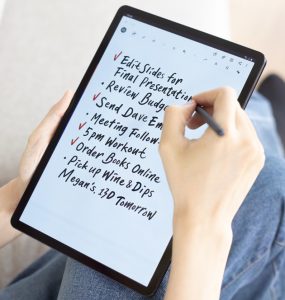 ✓ Edit Slides for
Final Presentation
• Review Budge
✓ Send Dave Em
• Meeting Follow
✓ 5pm Workout
✓ Order Books Online
• Pick up Wine & Dips
Megan's, 13D Tomorrow